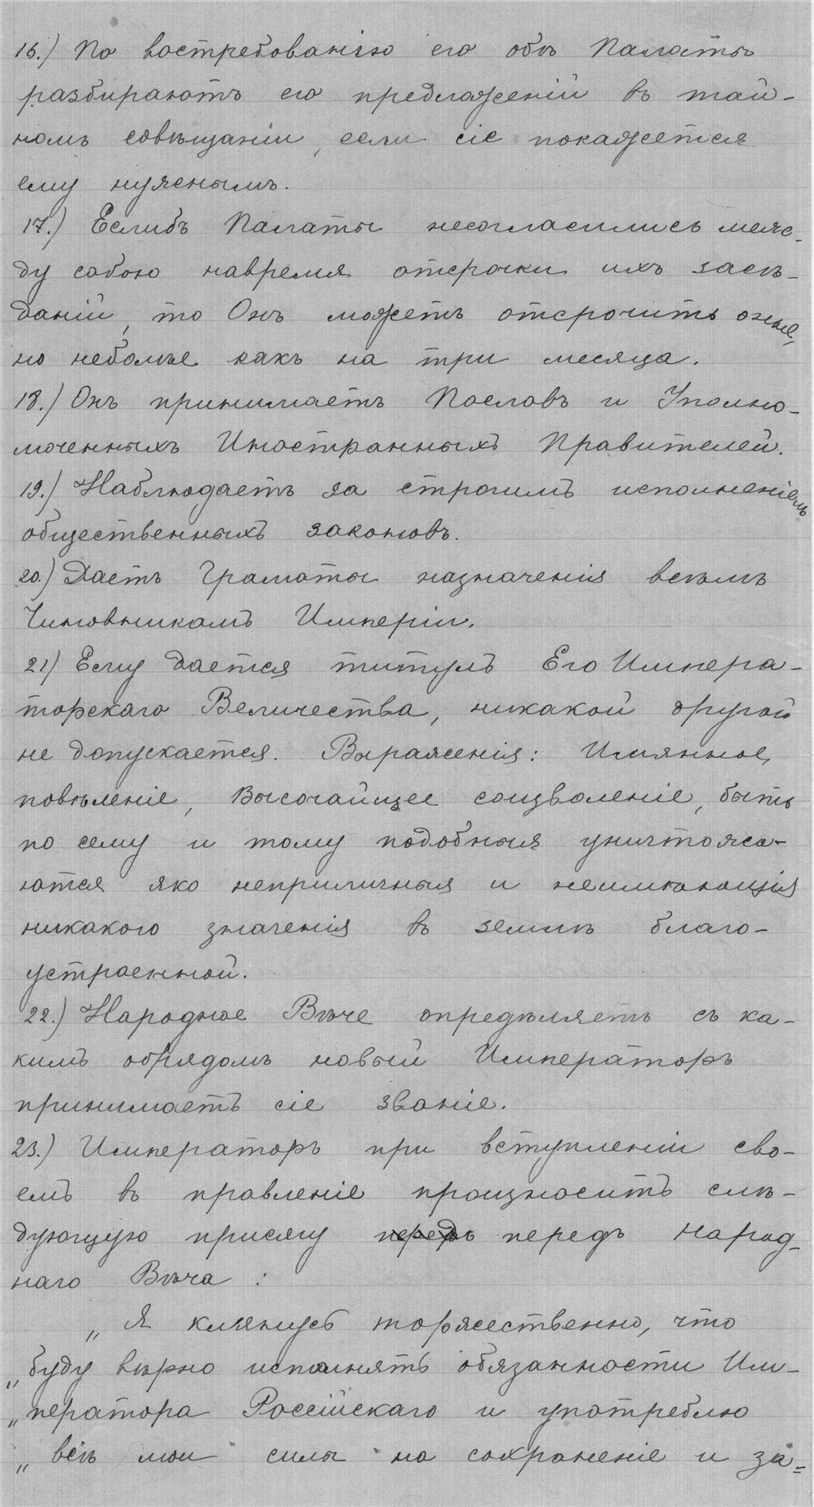 16.) По востребованiю его обѣ Палаты
разбираютъ его предложенiй въ тай-
номъ совѣщанiи, если сiе покажется
ему нужнымъ.
17.) Еслибъ Палаты несогласились меж-
ду собою навремя отсрочки ихъ засѣ-
данiй, то Онъ можетъ отсрочить оные,
но неболѣе какъ на три месяца.
18.) Онъ принимаетъ Пословъ и Уполно-
моченныхъ Иностранныхъ Правителей.
19.) Наблюдаетъ за строгимъ исполненiемъ
общественныхъ законовъ.
20.) Даетъ Грамоты назначенiя всѣмъ
Чиновникамъ Имперiи.
21) Ему дается титулъ Его Импера-
торскаго Величества, никакой другой
не допускается. Выраженiя: Имянное
повѣленiе, Высочайшее соизволенiе, быть
по сему и тому подобныя уничтожа-
ются яко неприличныя и неимѣющiя
никакого значенiя въ землѣ благо-
устроенной.
22.) Народное Вѣче опредѣляетъ съ ка-
кимъ обрядомъ новый Императоръ
принимаетъ сiе званiе.
23.) Императоръ при вступленiи сво-
емъ въ правленiе произноситъ слѣ-
дующую присягу передъ передъ Народ-
наго Вѣча :
„ Я клянусь торжественно, что
„ буду вѣрно исполнять обязанности Им-
„ ператора Россiйскаго и употреблю
„ всѣ мои силы на сохраненiе и за=